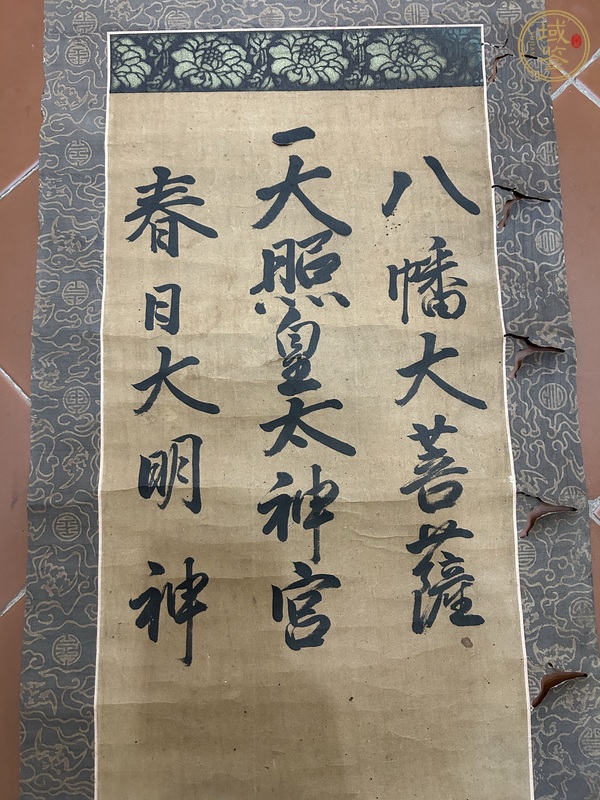 八幡大菩薩
天照皇太神宮
春日大明神
域鉴